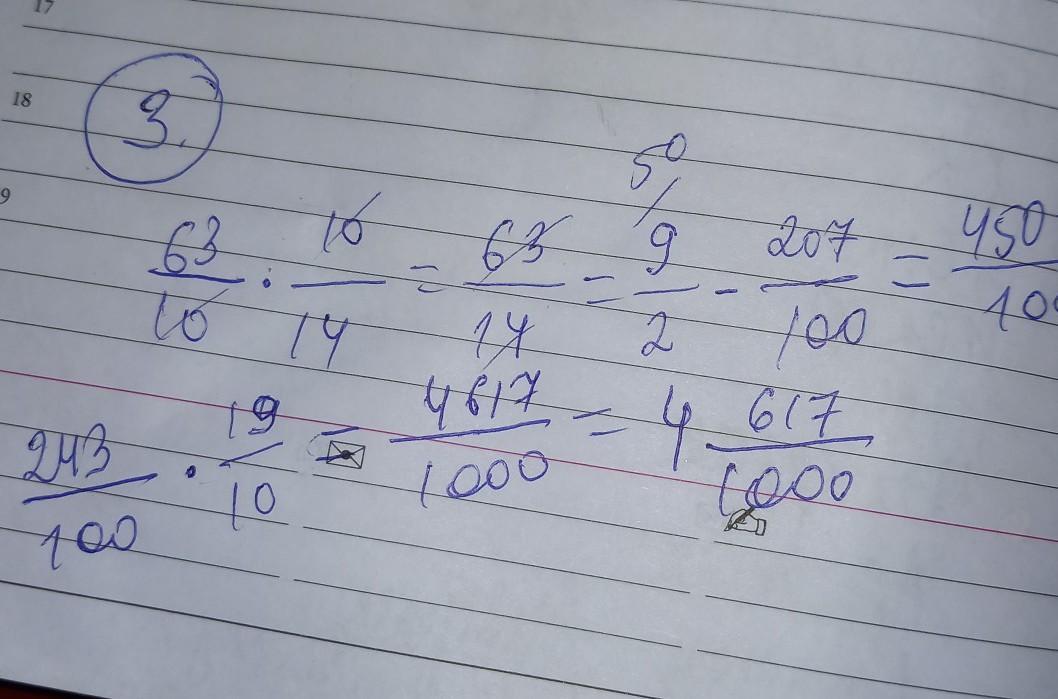 17
18
3.
50
63/10 : 10/14 = 63/14 = 9/2 - 207/100 = 450/100
9
243/100 · 19/10 = 4617/1000 = 4 617/1000